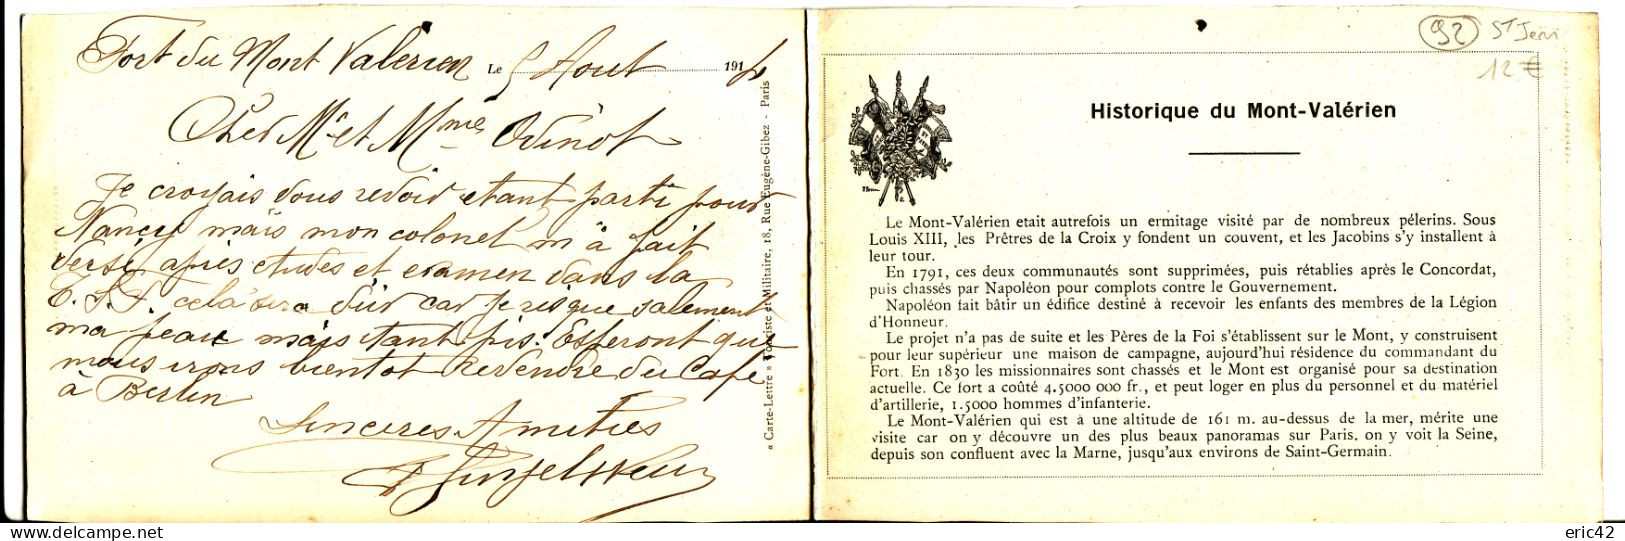 Fort du Mont Valérien Le 5 Aout 1914
Cher Mr et Mme Odinot
Je croyais vous revoir etant parti pour
Nançy mais mon colonel m'à fait
versé après etudes et examen dans la
T. S. F. cela sera dûr car je risque salement
ma peau mais tant pis. Esperont que
nous irons bientot revendre du Café
à Berlin
Sinceres Amitiés
« Carte-Lettre » Touriste et Militaire, 18, Rue Eugène-Gibez - Paris
92 St Jean
12 €
Historique du Mont-Valérien
Le Mont-Valérien etait autrefois un ermitage visité par de nombreux pélerins. Sous
Louis XIII, les Prêtres de la Croix y fondent un couvent, et les Jacobins s'y installent à
leur tour.
En 1791, ces deux communautés sont supprimées, puis rétablies après le Concordat,
puis chassés par Napoléon pour complots contre le Gouvernement.
Napoléon fait bâtir un édifice destiné à recevoir les enfants des membres de la Légion
d'Honneur.
Le projet n'a pas de suite et les Pères de la Foi s'établissent sur le Mont, y construisent
pour leur supérieur une maison de campagne, aujourd'hui résidence du commandant du
Fort. En 1830 les missionnaires sont chassés et le Mont est organisé pour sa destination
actuelle. Ce fort a coûté 4.5000 000 fr., et peut loger en plus du personnel et du matériel
d'artillerie, 1.5000 hommes d'infanterie.
Le Mont-Valérien qui est à une altitude de 161 m. au-dessus de la mer, mérite une
visite car on y découvre un des plus beaux panoramas sur Paris. on y voit la Seine,
depuis son confluent avec la Marne, jusqu'aux environs de Saint-Germain.
eric42